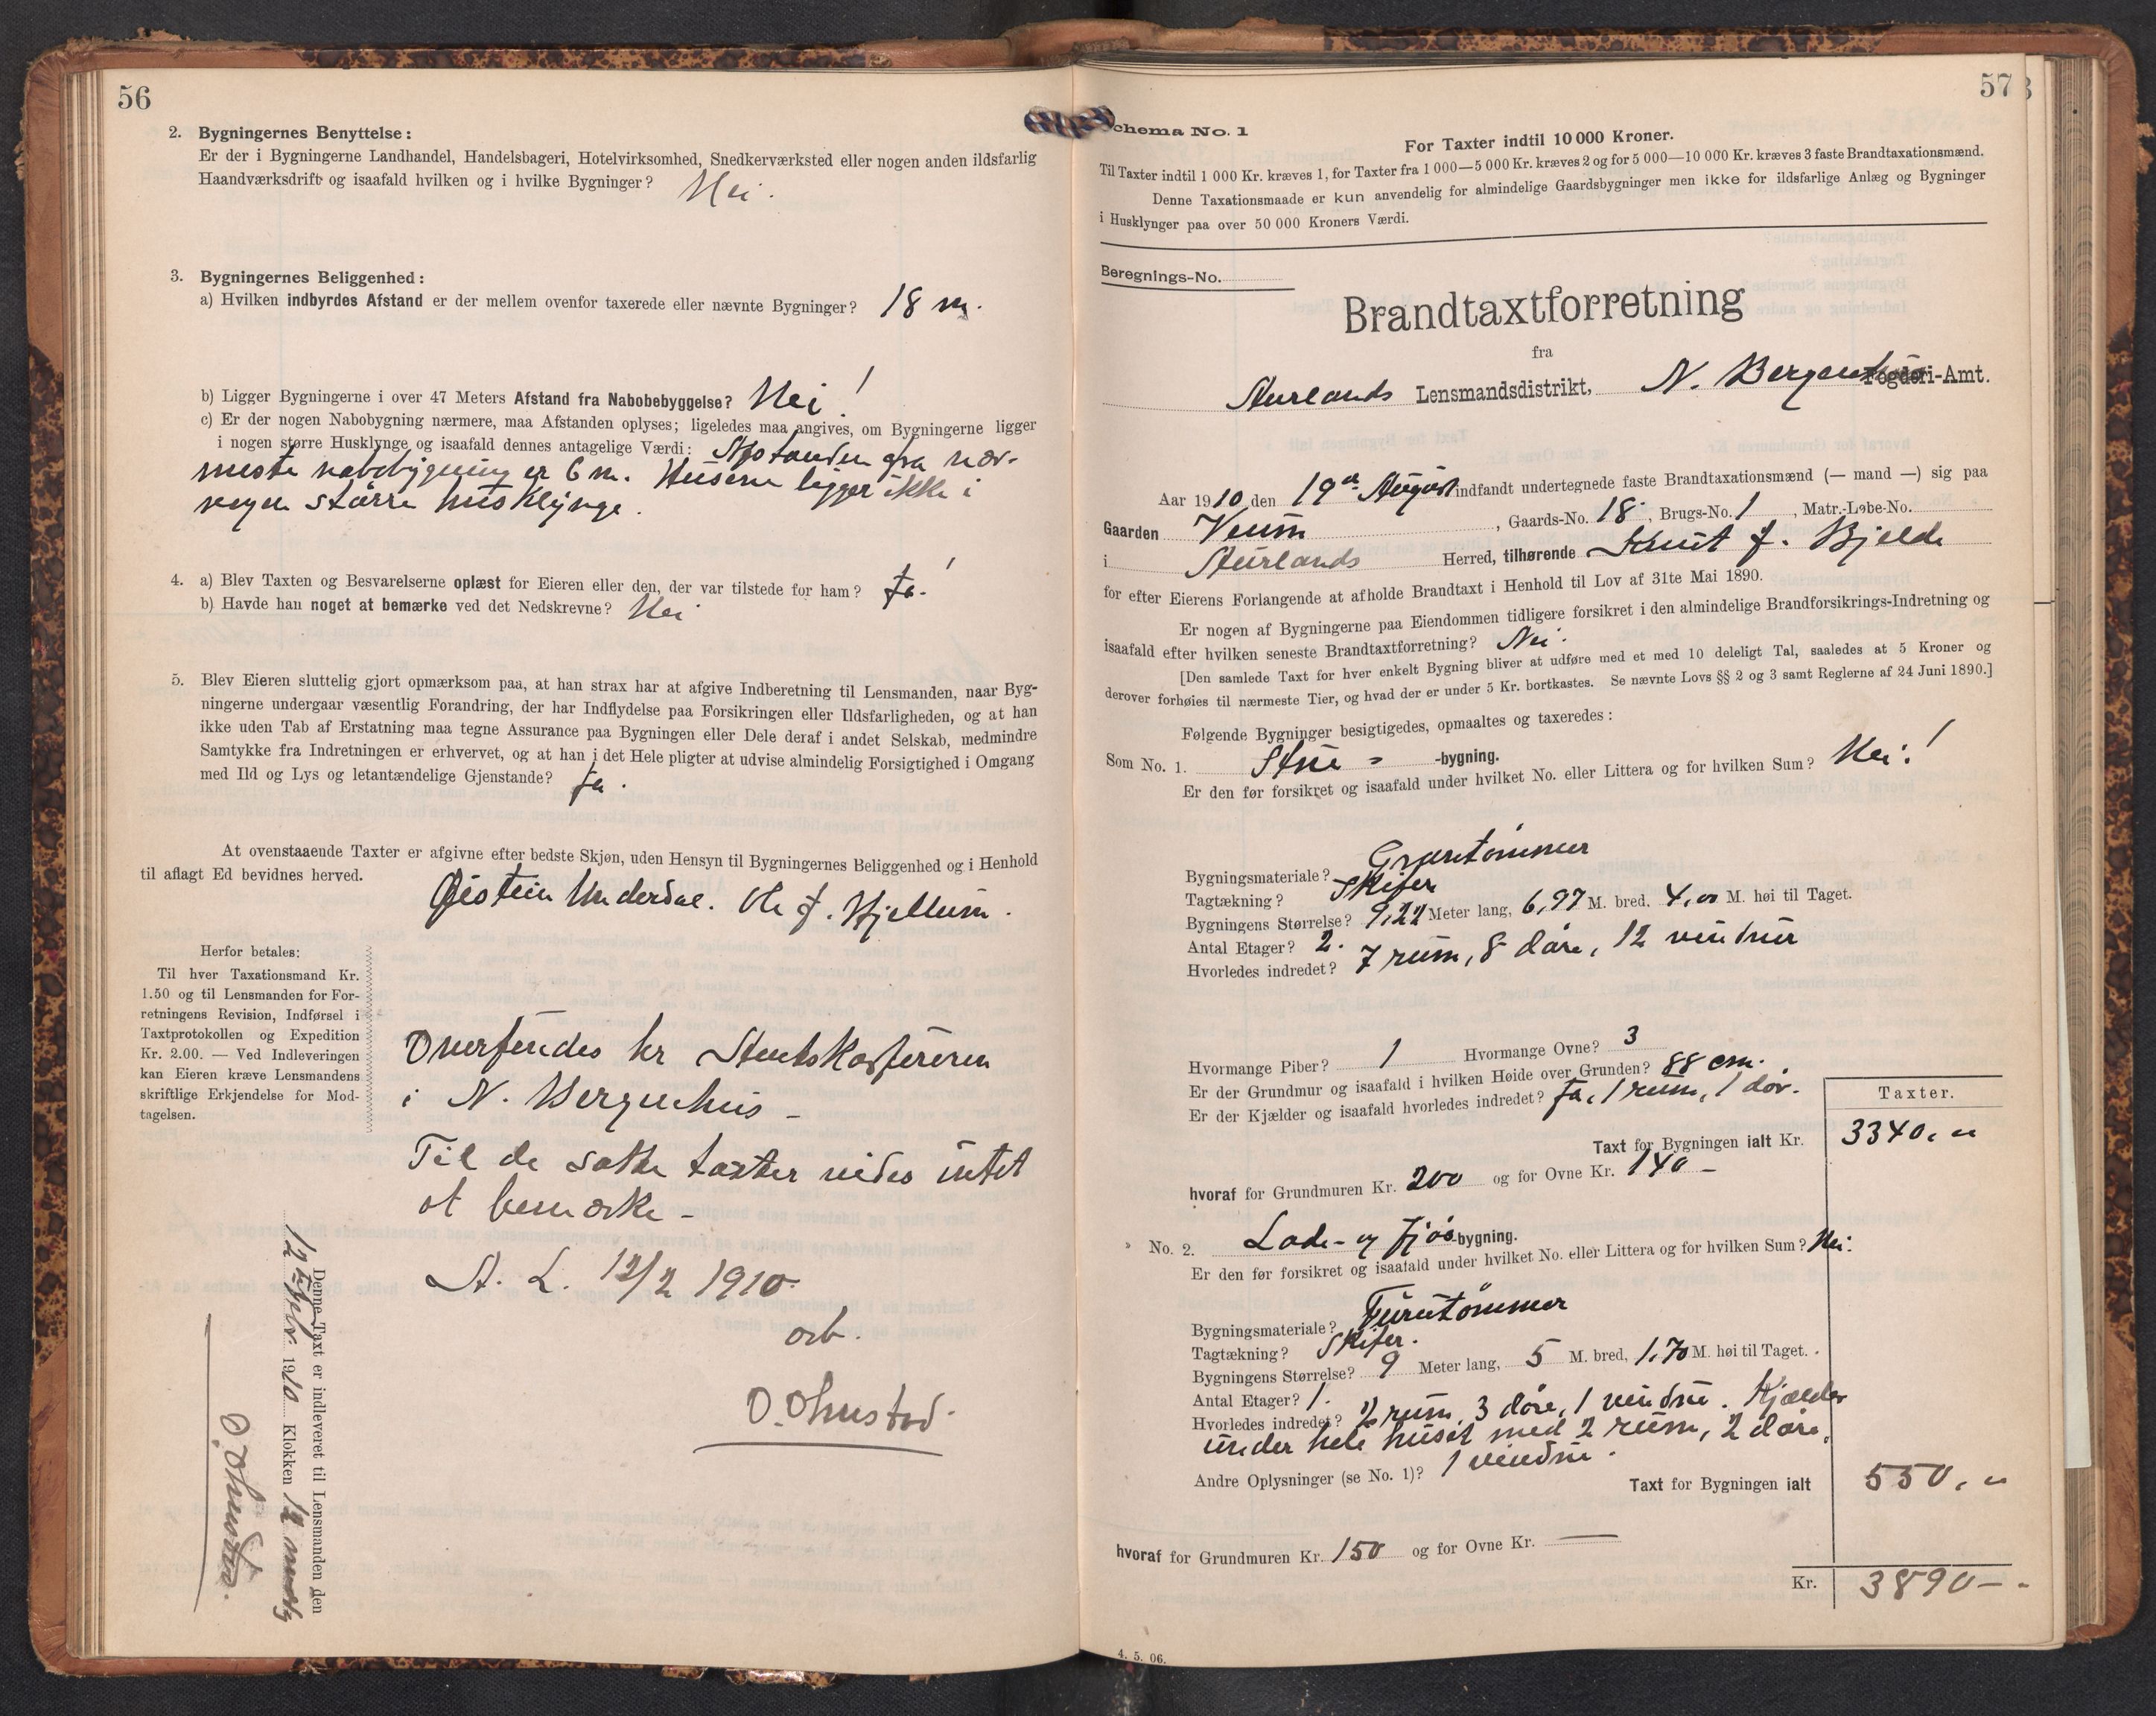 56
2. Bygningernes Benyttelse:
Er der i Bygningerne Landhandel, Handelsbageri, Hotelvirksomhed, Snedkerværksted eller nogen anden ildsfarlig
Haandværksdrift og isaafald hvilken og i hvilke Bygninger? Nei.
3. Bygningernes Beliggenhed:
a) Hvilken indbyrdes Afstand er der mellem ovenfor taxerede eller nævnte Bygninger? 18 m.
b) Ligger Bygningerne i over 47 Meters Afstand fra Nabobebyggelse? Nei!
c) Er der nogen Nabobygning nærmere, maa Afstanden oplyses; ligeledes maa angives, om Bygningerne ligger
i nogen større Husklynge og isaafald dennes antagelige Værdi: Afstanden fra nær-
meste nabobygning er 6 m. Husene ligger ikke i
nogen större husklynge.
4. a) Blev Taxten og Besvarelserne oplæst for Eieren eller den, der var tilstede for ham? Ja!
b) Havde han noget at bemærke ved det Nedskrevne? Nei
5. Blev Eieren sluttelig gjort opmærksom paa, at han strax har at afgive Indberetning til Lensmanden, naar Byg-
ningerne undergaar væsentlig Forandring, der har Indflydelse paa Forsikringen eller Ildsfarligheden, og at han
ikke uden Tab af Erstatning maa tegne Assurance paa Bygningen eller Dele deraf i andet Selskab, medmindre
Samtykke fra Indretningen er erhvervet, og at han i det Hele pligter at udvise almindelig Forsigtighed i Omgang
med Ild og Lys og letantændelige Gjenstande? Ja.
At ovenstaaende Taxter er afgivne efter bedste Skjøn, uden Hensyn til Bygningernes Beliggenhed og i Henhold
til aflagt Ed bevidnes herved.
Øistein Underdal. Ole J. Hjellum.
Herfor betales:
Til hver Taxationsmand Kr.
1.50 og til Lensmanden for For-
retningens Revision, Indførsel i
Taxtprotokollen og Expedition
Kr. 2.00. — Ved Indleveringen
kan Eieren kræve Lensmandens
skriftlige Erkjendelse for Mod-
tagelsen.
Oversendes hr Amtskasserern
i N. Bergenhus –
Til de satte taxter vides intet
at bemærke –
A. L. 12/2 1910.
orb.
O. Ohnstad.
Denne Taxt er indleveret til Lensmanden den
12te Febr. 1910 Klokken 12 middg
O. Ohnstad.
57
Schema No. 1
For Taxter indtil 10 000 Kroner.
Til Taxter indtil 1 000 Kr. kræves 1, for Taxter fra 1 000—5 000 Kr. kræves 2 og for 5 000—10 000 Kr. kræves 3 faste Brandtaxationsmænd.
Denne Taxationsmaade er kun anvendelig for almindelige Gaardsbygninger men ikke for ildsfarlige Anlæg og Bygninger
i Husklynger paa over 50 000 Kroners Værdi.
Beregnings-No.
Brandtaxtforretning
fra
Aurlands Lensmandsdistrikt, N. Bergenhus Fogderi-Amt.
Aar 1910 den 19de August indfandt undertegnede faste Brandtaxationsmænd (— mand —) sig paa
Gaarden Veum, Gaards-No. 18, Brugs-No. 1, Matr.-Løbe-No.
i Aurlands Herred, tilhørende Knut J. Bjelde
for efter Eierens Forlangende at afholde Brandtaxt i Henhold til Lov af 31te Mai 1890.
Er nogen af Bygningerne paa Eiendommen tidligere forsikret i den almindelige Brandforsikrings-Indretning og
isaafald efter hvilken seneste Brandtaxtforretning? Nei.
[Den samlede Taxt for hver enkelt Bygning bliver at udføre med et med 10 deleligt Tal, saaledes at 5 Kroner og
derover forhøies til nærmeste Tier, og hvad der er under 5 Kr. bortkastes. Se nævnte Lovs §§ 2 og 3 samt Reglerne af 24 Juni 1890.]
Følgende Bygninger besigtigedes, opmaaltes og taxeredes:
Som No. 1. Stue - -bygning.
Er den før forsikret og isaafald under hvilket No. eller Littera og for hvilken Sum? Nei!
Bygningsmateriale? Grantömmer
Tagtækning? Skifer
Bygningens Størrelse? 9,22 Meter lang, 6,97 M. bred, 4,00 M. høi til Taget.
Antal Etager? 2.
Hvorledes indredet? 7 rum, 8 döre, 12 vinduer
Hvormange Piber? 1 Hvormange Ovne? 3
Er der Grundmur og isaafald i hvilken Høide over Grunden? 88 cm.
Er der Kjælder og isaafald hvorledes indredet? Ja, 1 rum, 1 dør.
Taxter.
Taxt for Bygningen ialt Kr. 3340, "
hvoraf for Grundmuren Kr. 200 og for Ovne Kr. 140 –
No. 2. Lade- og fjös-bygning.
Er den før forsikret og isaafald under hvilket No. eller Littera og for hvilken Sum? Nei.
Bygningsmateriale? Furutömmer
Tagtækning? Skifer.
Bygningens Størrelse? 9 Meter lang, 5 M. bred, 1,70 M. høi til Taget.
Antal Etager? 1.
Hvorledes indredet? 2 rum, 3 döre, 1 vindu. Kjælder
under hele huset med 2 rum, 2 döre,
1 vindu.
Andre Oplysninger (se No. 1)?
Taxt for Bygningen ialt 550, "
hvoraf for Grundmuren Kr. 150 og for Ovne Kr. —
Kr. 3890 –
4. 5. 06.